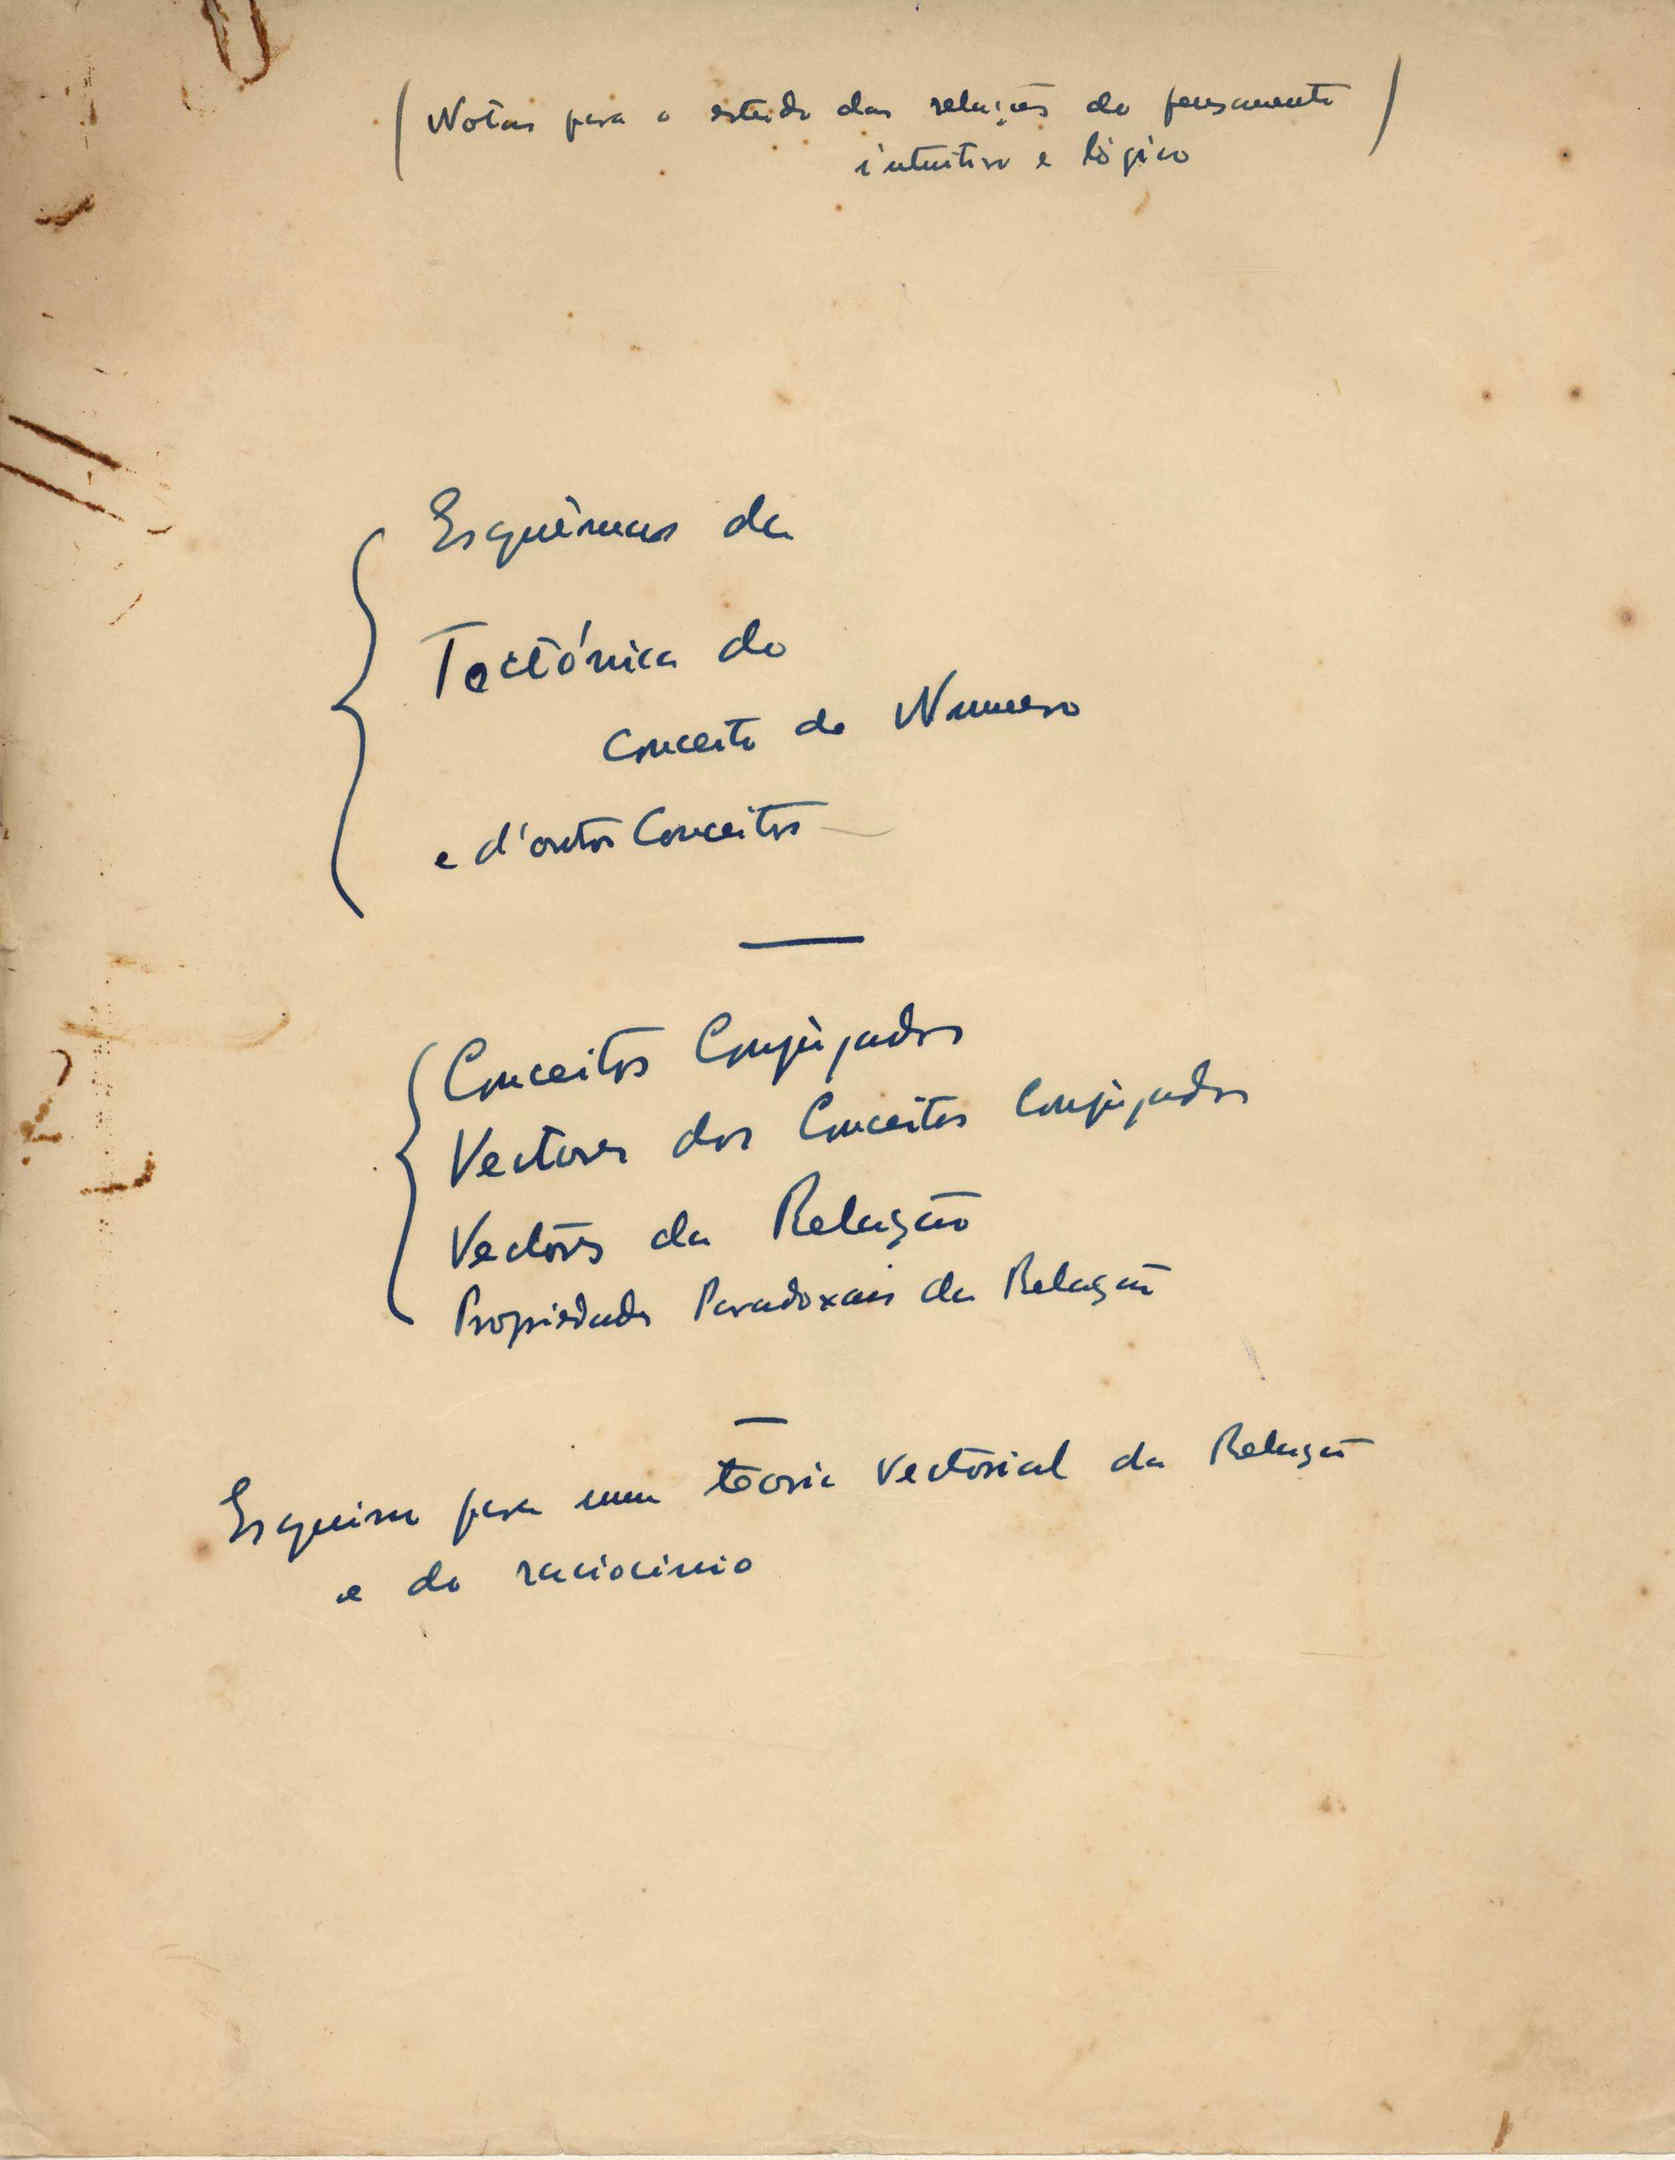 (Notas para o estudo das relações do pensamento)
intuitivo e lógico
Esquêmas da
Tectónica do
conceito de Numero
e d'outros Conceitos
Conceitos Conjùgados
Vectores dos Conceitos Conjùgados
Vectores da Relação
Propriedades Paradoxais da Relação
Esquema para uma teoria vectorial da Relação
e do raciocinio